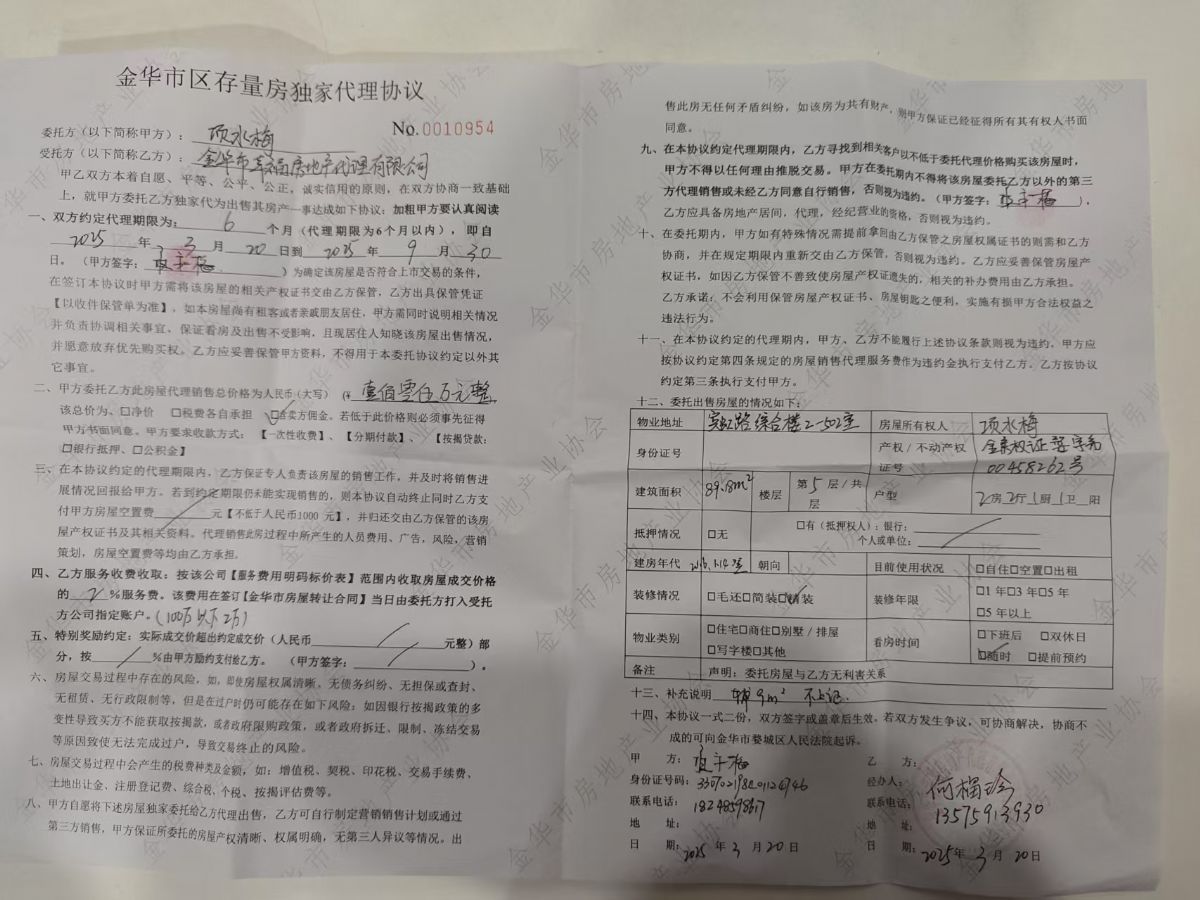 金华市区存量房独家代理协议
No.0010954
委托方（以下简称甲方）：项水梅
受托方（以下简称乙方）：金华市幸福房地产代理有限公司
甲乙双方本着自愿、平等、公平、公正，诚实信用的原则，在双方协商一致基础
上，就甲方委托乙方独家代为出售其房产一事达成如下协议：加粗甲方要认真阅读
一、双方约定代理期限为：6个月（代理期限为6个月以内），即自
2025年3月20日到2025年9月30
日。（甲方签字：）为确定该房屋是否符合上市交易的条件，
在签订本协议时甲方需将该房屋的相关产权证书交由乙方保管，乙方出具保管凭证
【以收件保管单为准】，如本房屋尚有租客或者亲戚朋友居住，甲方需同时说明相关情况
并负责协调相关事宜、保证看房及出售不受影响，且现居住人知晓该房屋出售情况，
并愿意放弃优先购买权。乙方应妥善保管甲方资料，不得用于本委托协议约定以外其
它事宜。
二、甲方委托乙方此房屋代理销售总价格为人民币（大写）壹佰零伍万元整
该总价为、□净价 □税费各自承担 ☑含卖方佣金。若低于此价格则必须事先征得
甲方书面同意。甲方要求收款方式：【一次性收费】、【分期付款】、【按揭贷款：
□银行抵押、□公积金】
三、在本协议约定的代理期限内，乙方保证专人负责该房屋的销售工作，并及时将销售进
展情况回报给甲方。若到约定期限仍未能实现销售的，则本协议自动终止同时乙方支
付甲方房屋空置费 / 元【不低于人民币1000 元】，并归还交由乙方保管的该房
屋产权证书及其相关资料。代理销售此房过程中所产生的人员费用、广告，风险，营销
策划，房屋空置费等均由乙方承担。
四、乙方服务收费收取：按该公司【服务费用明码标价表】范围内收取房屋成交价格
的 2 %服务费。该费用在签订【金华市房屋转让合同】当日由委托方打入受托
方公司指定账户。（100万以下2万）
五、特别奖励约定：实际成交价超出约定成交价（人民币 / 元整）部
分，按 / %由甲方励约支付给乙方。（甲方签字： / ）。
六、房屋交易过程中存在的风险，如，即使房屋权属清晰、无债务纠纷、无担保或查封、
无租赁、无行政限制等，但是在过户时仍可能存在如下风险：如因银行按揭政策的多
变性导致买方不能获取按揭款，或者政府限购政策，或者政府拆迁、限制、冻结交易
等原因致使无法完成过户，导致交易终止的风险。
七、房屋交易过程中会产生的税费种类及金额，如：增值税、契税、印花税、交易手续费、
土地出让金、注册登记费、综合税、个税、按揭评估费等。
八、甲方自愿将下述房屋独家委托给乙方代理出售，乙方可自行制定营销销售计划或通过
第三方销售，甲方保证所委托的房屋产权清晰、权属明确，无第三人异议等情况。出
售此房无任何矛盾纠纷，如该房为共有财产，则甲方保证已经征得所有其有权人书面
同意。
九、在本协议约定代理期限内，乙方寻找到相关客户以不低于委托代理价格购买该房屋时，
甲方不得以任何理由推脱交易。甲方在委托期内不得将该房屋委托乙方以外的第三
方代理销售或未经乙方同意自行销售，否则视为违约。（甲方签字：），
乙方应具备房地产居间，代理，经纪营业的资格，否则视为违约。
十、在委托期内，甲方如有特殊情况需提前拿回由乙方保管之房屋权属证书的则需和乙方
协商，并在规定期限内重新交由乙方保管，否则视为违约。乙方应妥善保管房屋产
权证书，如因乙方保管不善致使房屋产权证遗失的，相关的补办费用由乙方承担。
乙方承诺：不会利用保管房屋产权证书、房屋钥匙之便利，实施有损甲方合法权益之
违法行为。
十一、在本协议约定的代理期内，甲方、乙方不能履行上述协议条款则视为违约。甲方应
按协议约定第四条规定的房屋销售代理服务费作为违约金执行支付乙方。乙方按协议
约定第三条执行支付甲方。
十二、委托出售房屋的情况如下：
物业地址 宾虹路综合楼2-502室 房屋所有权人 项水梅
身份证号 产权／不动产权证号 00458262号
建筑面积 89.18m² 楼层 第5层/共 层 户型 2房2厅1厨1卫 阳
抵押情况 □无 □有（抵押权人）：银行：
个人或单位：
建房年代 朝向 目前使用状况 □自住□空置□出租
装修情况 □毛还□简装☑精装 装修年限 □1年□3年□5年
□5年以上
物业类别 □住宅□商住□别墅／排屋
□写字楼□其他
看房时间 □下班后 □双休日
☑随时 □提前预约
备注 声明：委托房屋与乙方无利害关系
十三、补充说明 辅9m² 不上证.
十四、本协议一式二份，双方签字或盖章后生效。若双方发生争议，可协商解决，协商不
成的可向金华市婺城区人民法院起诉。
甲 方：
身份证号码：
联系电话：
地 址：
日 期：2025年3月20日
乙 方：
经办人：何梅玲
联系电话：13575913930
地 址：
日 期：2025年3月20日